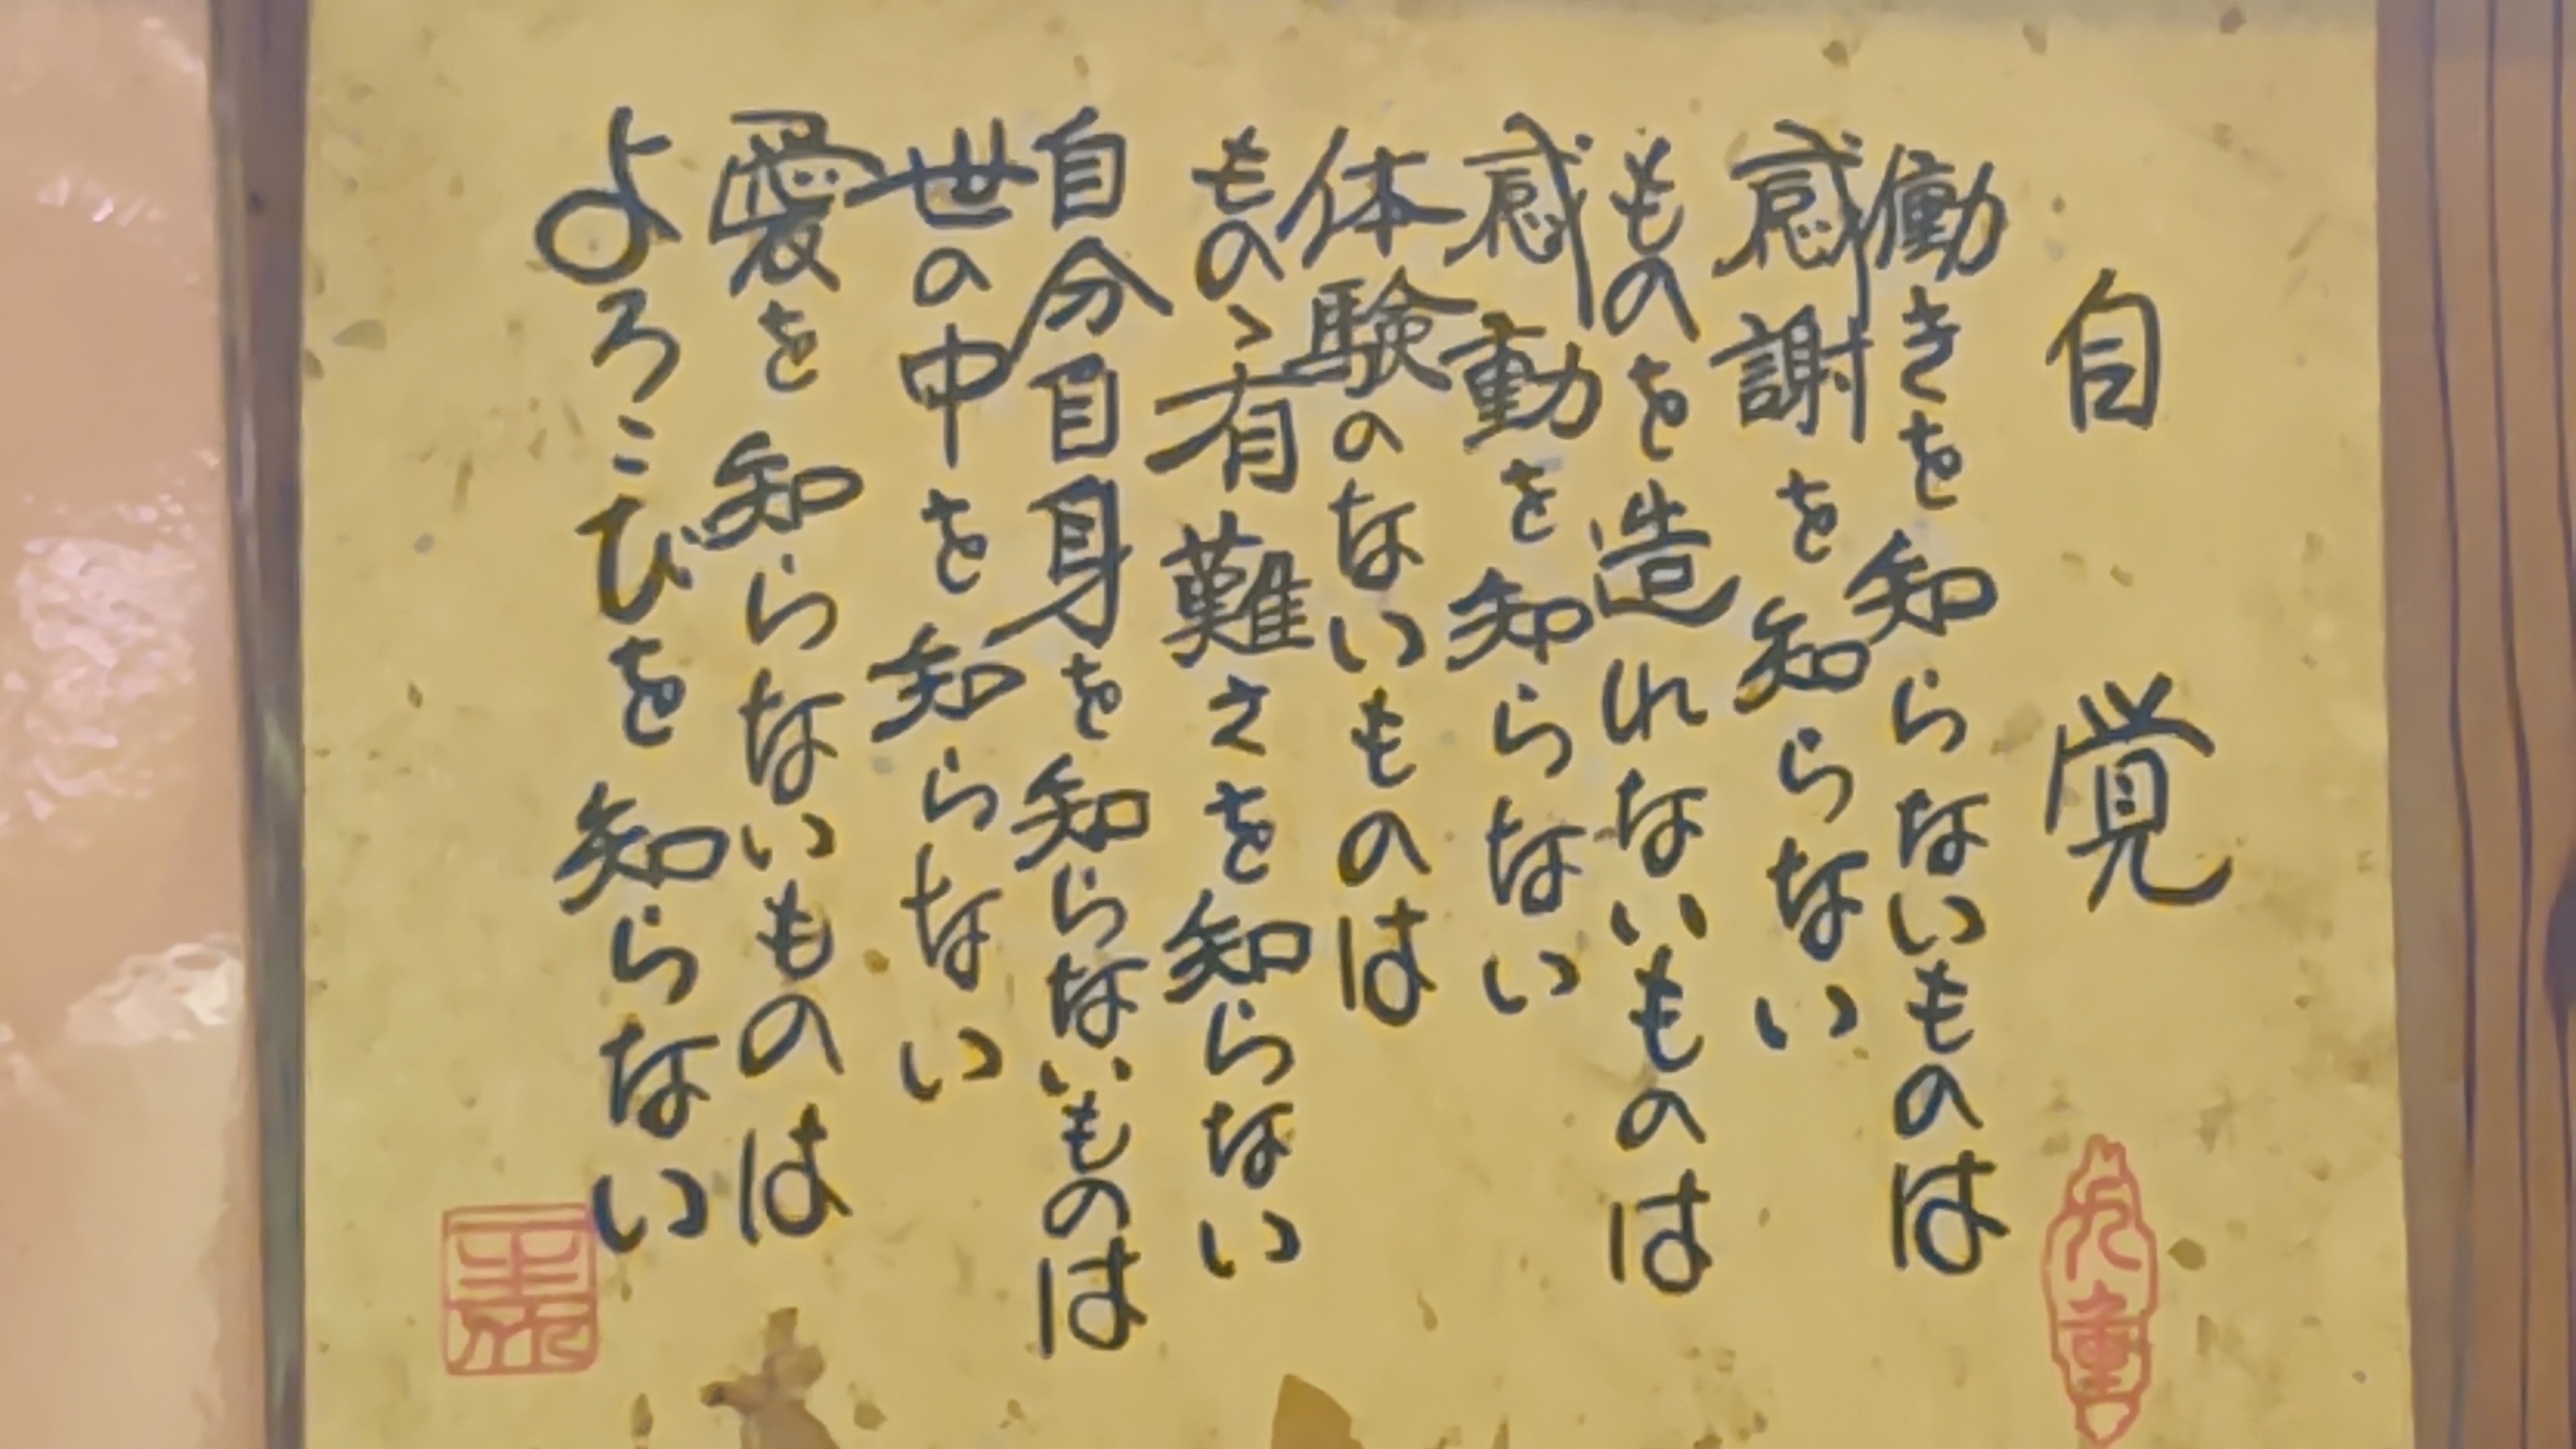 自覚
働きを知らないものは
感謝を知らない
ものを造れないものは
感動を知らない
体験のないものは
ものゝ有難さを知らない
自分自身を知らないものは
世の中を知らない
愛を知らないものは
よろこびを知らない
九重